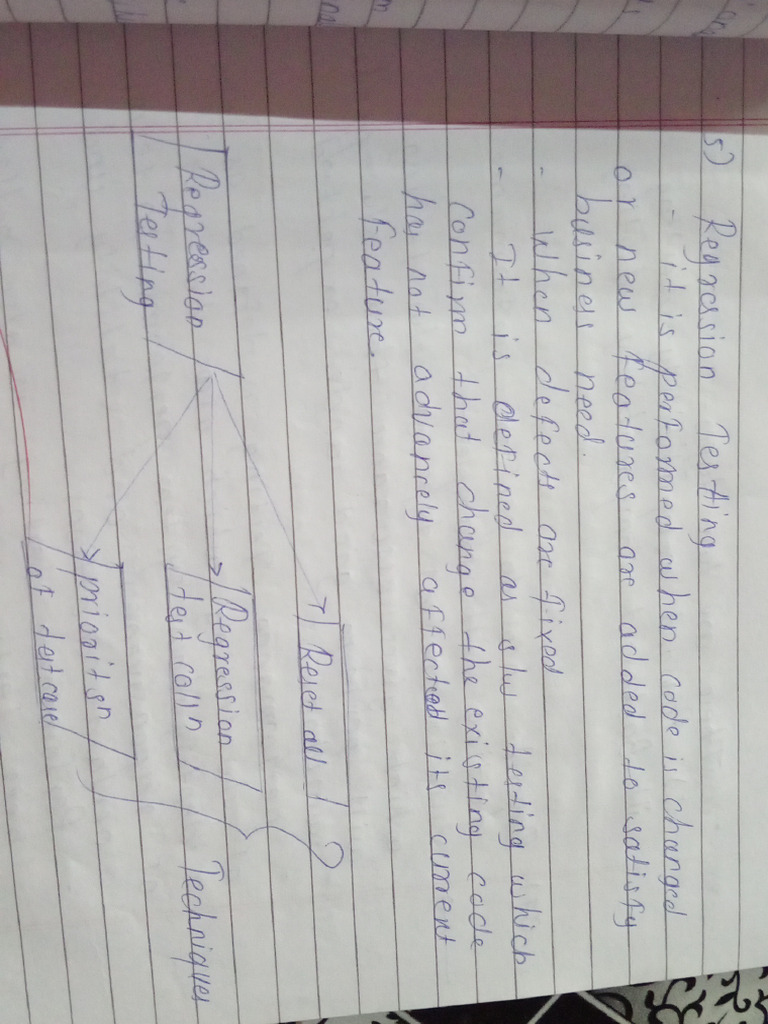 5) Regression Testing
- it is performed when code is changed
or new features are added to satisfy
business need.
- When defects are fixed
- It is defined as s/w testing which
confirm that change the existing code
has not advancely affected its current
feature.
Reset all
Regression
Testing
Regression
test
Techniques
prioritsn
of testcase